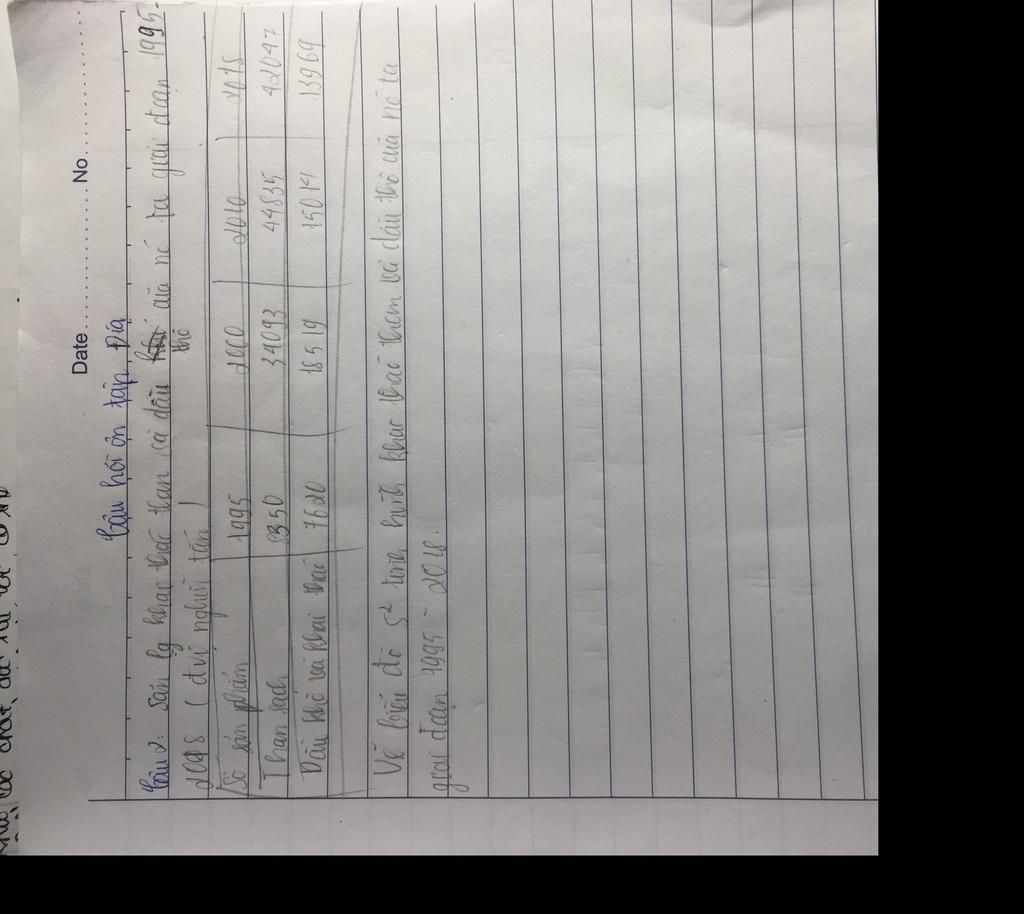 Date No
Câu hỏi ôn tập Địa
Câu 2: sản lg khai thác than và dầu thô của nc ta giai đoạn 1995-
2018 (đvị nghìn tấn)
Số sản phẩm 1995 2000 2010 2018
Than sạch 8350 34093 44835 42047
Dầu thô và khai thác 7620 18519 15014 13969
Vẽ biểu đồ s² tình hình khai thác than và dầu thô của nc ta
giai đoạn 1995 - 2018.